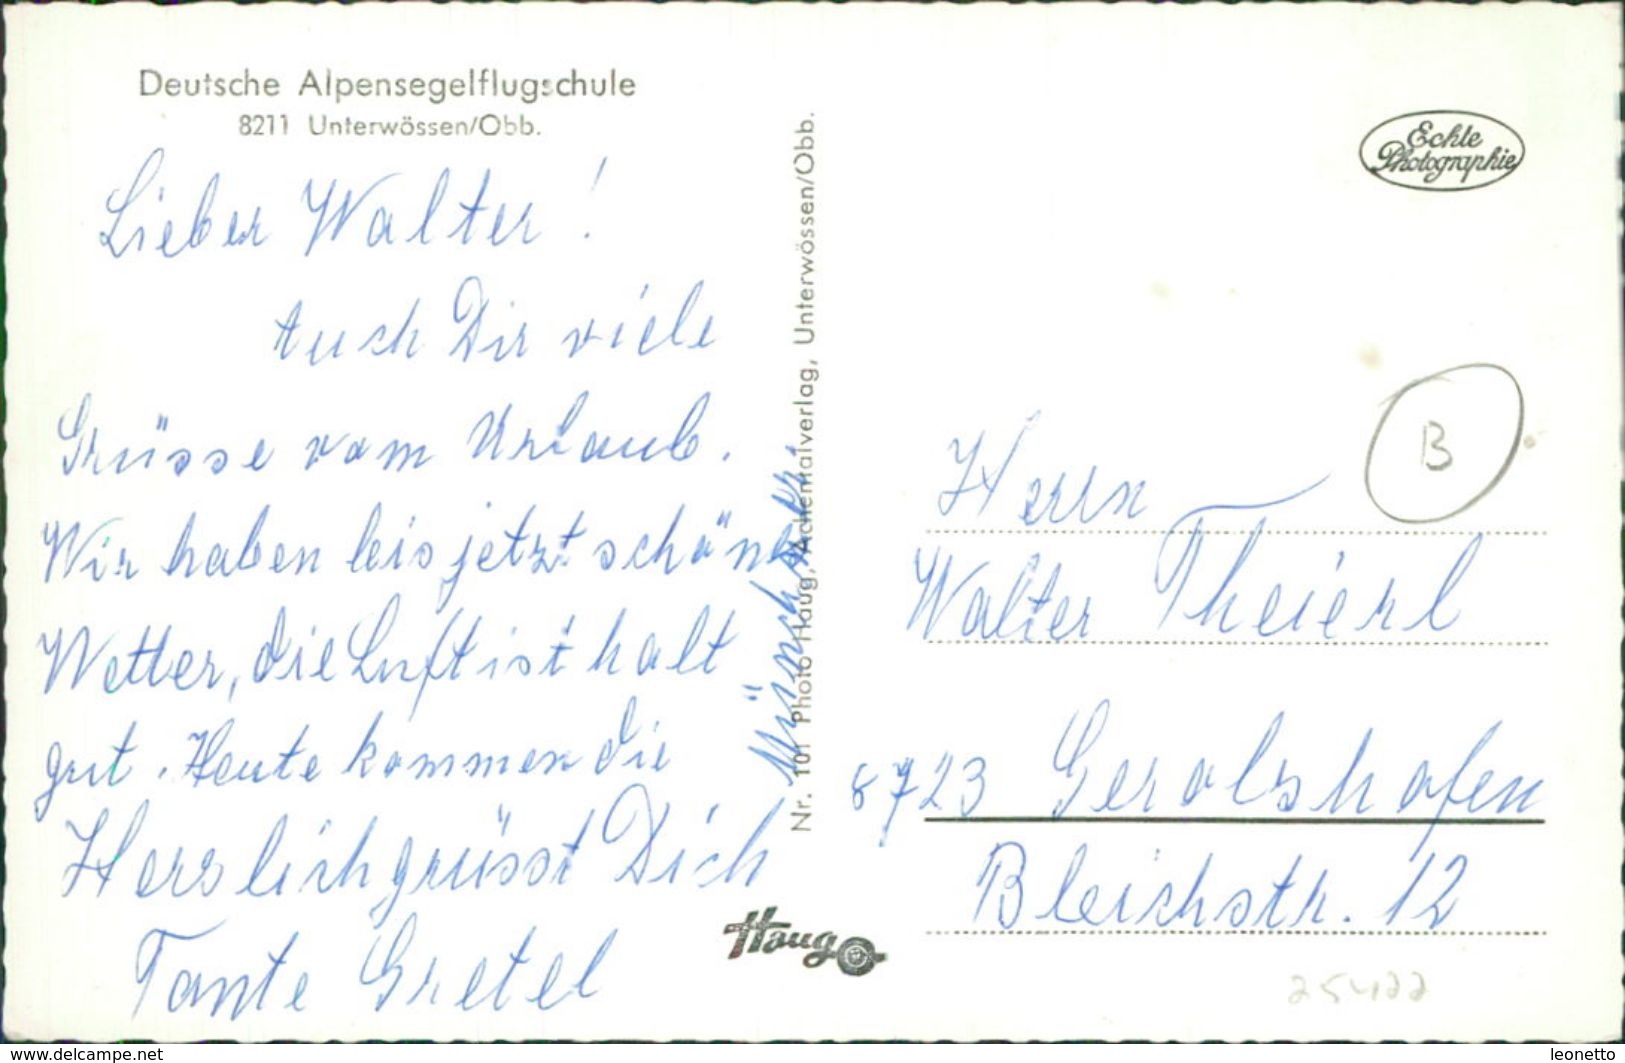 Deutsche Alpensegelflugschule
8211 Unterwössen/Obb.
Lieber Walter!
Auch Dir viele
Grüsse vom Urlaub.
Wir haben bis jetzt schönes
Wetter, die Luft ist halt
gut. Heute kommen die
Münchner.
Herzlich grüsst Dich
Tante Gretel
Nr. 101 Photo Haug, Achentalverlag, Unterwössen/Obb.
Haug
Echte
Photographie
B
Herrn
Walter Theierl
8723 Gerolshofen
Bleichstr. 12
25422
www.delcampe.net
leonetto